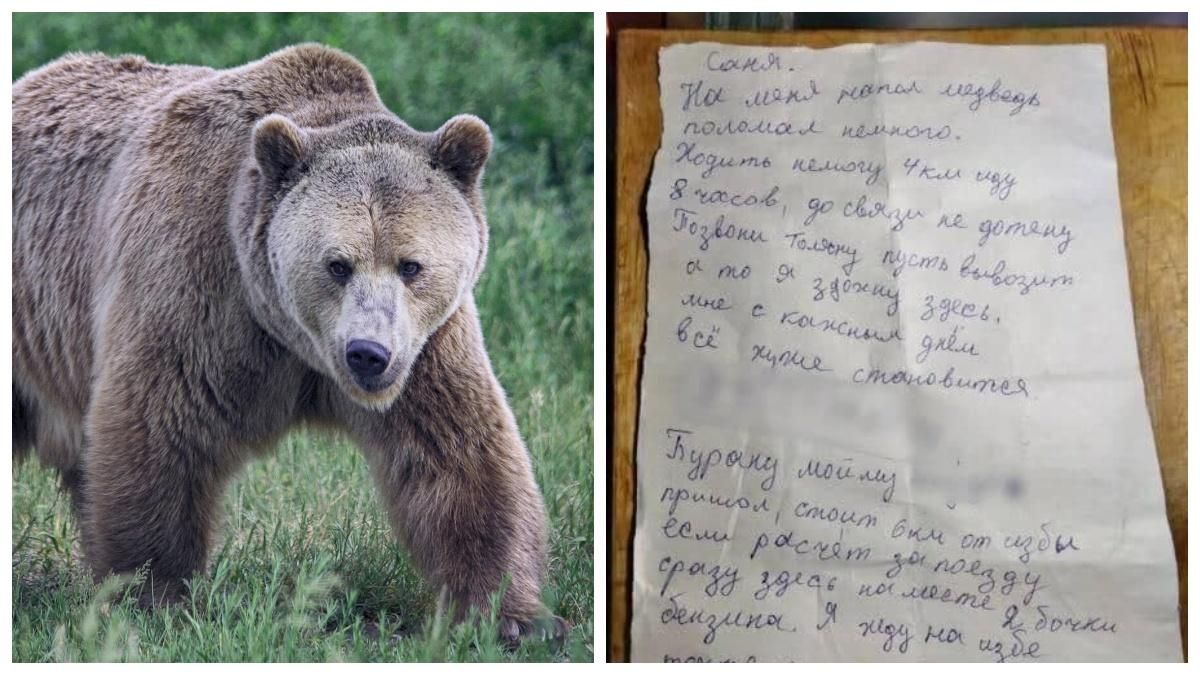 Саня.
На меня напал медведь
поломал немного.
Ходить немогу 4км иду
8 часов, до связи не дотену
Позвони Толяну пусть вывозит
а то я здохну здесь.
мне с кажным днём
всё хуже становится
Бурану мойму
пришол, стоит 6км от избы
если расчёт за поезду
сразу здесь на месте 2 бочки
бензина. Я жду на избе